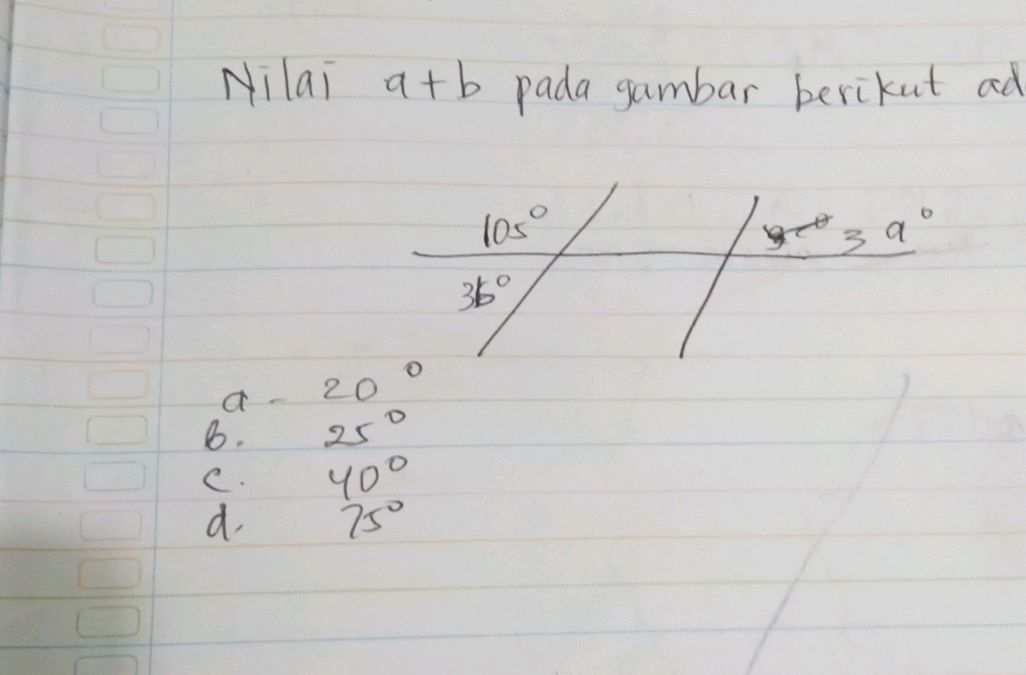 Nilai a+b pada gambar berikut ad
105° 3 a°
36°
a - 20°
b. 25°
c. 40°
d. 75°